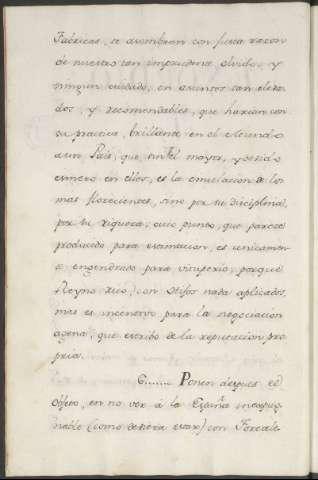 Fabricas, se asombran con justa razon
de nuestro tan imprudente olvido, y
ningun cuidado, en asuntos tan eleba
dos, y recomendables, que harian con
su practica, brillante en el
a un Pais, que sin el mayor,
esmero en ellos, es la emulacion de los
mas florecientes, sino por su disciplina,
por su riqueza; cuio punto, que parece
producido para estimacion, es unicamen-
te engendrado para vituperio; porque
Reyno rico, con Hijos nada aplicados,
mas es incentivo para la negociacion
agena, que estribo de la reputacion pro
pria.
6....... Ponen despues el
Objeto, en no ver à la España inexpug-
nable (como deviera estar) con Forcale-